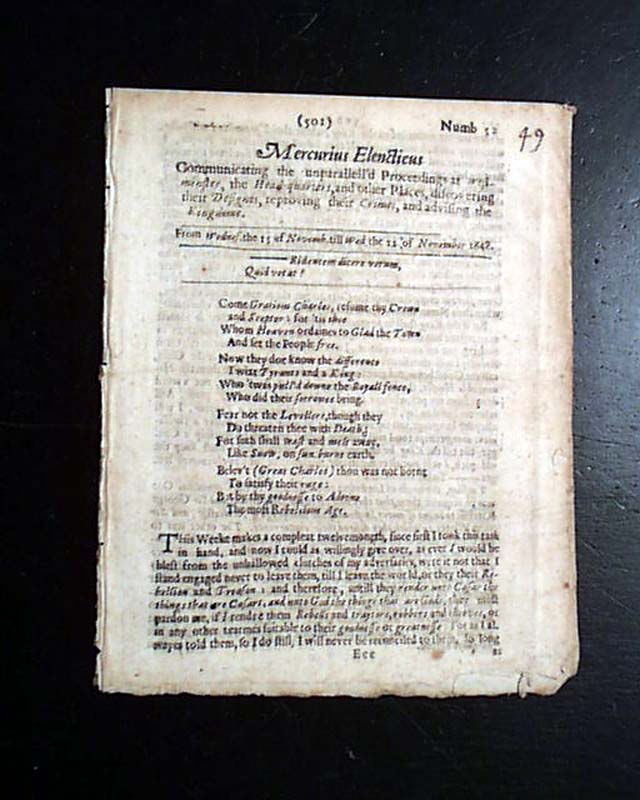 (501)
Numb 52
49
Mercurius Elencticus
Communicating the unparallell'd Proceedings at West-
minster, the Head-quarters, and other Places, discovering
their Designes, reproving their Crimes, and advising the
Kingdome.
From Wednes. the 15 of Novemb. till Wed the 22 of November 1648.
Ridentem dicere verum,
Quid vetat?
Come Gratious Charles, resume thy Crown
and Scepter: for 'tis thee
Whom Heaven ordaines to Glad the Town
And set the People free.
Now they doe know the difference
I'wixt Tyrants and a King:
Who 'twas pull'd downe the Royall fence,
Who did their sorrowes bring.
Fear not the Levellers, though they
Do threaten thee with Death;
For such shall wast and melt away,
Like Snow, on sun-burnt earth.
Beleev't (Great Charles) thou was not borne
To satisfy their rage:
But by thy goodnesse to Adorne
The most Rebellious Age.
This Weeke makes a compleat twelvemonth, since first I took this task
in hand, and now I could as willingly give over, as ever I would be
blest from the unhallowed clutches of my adversaries, were it not that I
stand engaged never to leave them, till I leave the world, or they their Re-
bellion and Treason: and therefore, untill they render unto Cesar the
things that are Cesars, and unto God the things that are Gods, they must
pardon me, if I render them Rebells and traytors, robbers and theeves, or
in any other tearmes suitable to their goodnesse or greatnesse. For as I al-
wayes told them, so I do still, I will never be reconciled to them, so long
Eee
as